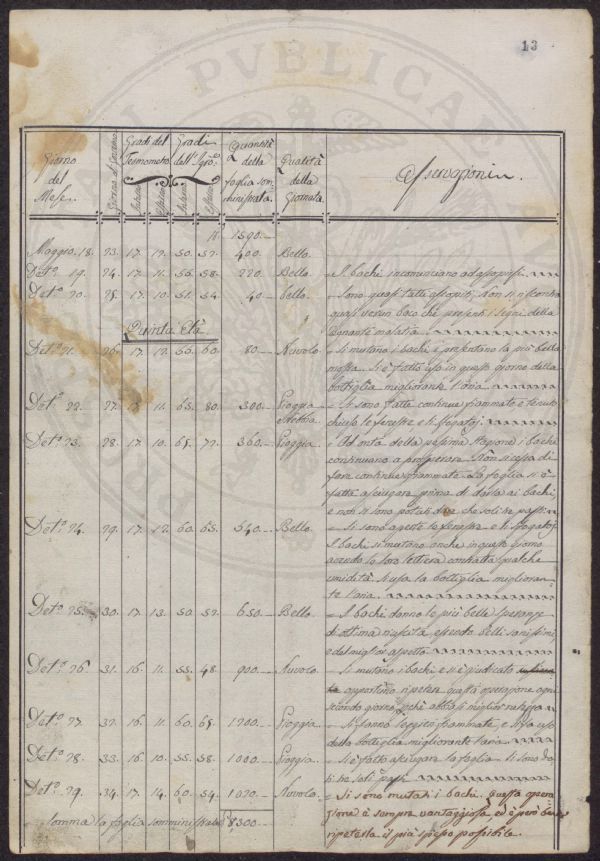 13
PVBLICAE
Giorno del Mese.
Giorno di Governo
Gradi del Termometro
Interno
Esterno
Gradi dell'Igro.
Interno
Esterno
Quantità della foglia somministrata.
Qualità della Giornata.
Osservazioni.
1590.
Maggio. 18. 23. 17. 12. 50. 52. 400. Bello.
Det.º 19. 24. 17. 11. 56. 58. 220. Bello. I bachi incominciano ad assopirsi.
Det.º 20. 25. 17. 10. 51. 54. 40. bello. Sono quasi tutti assopiti. Non si riscontra
quasi verun baco che presenti i segni della
dominante malatia.
Quinta Età
Det.º 21. 26. 17. 12. 66. 60. 80. Nuvolo. Si mutano i bachi e presentano la più bella
mossa. Si è fatto uso in questo giorno della
bottiglia migliorante l'aria.
Det.º 22. 27. 17. 11. 65. 80. 300. Pioggia Si sono fatte continue fiammate e tenuto
chiuse le fenestre e li sfogatoj.
Det.º 23. 28. 17. 10. 65. 72. 360. Pioggia. Ad onta della pessima stagione i bachi
continuano a prosperare. Non si cessa di
fare continue fiammate. La foglia si è
fatta asciugare prima di darla ai bachi,
e non si sono potuti dare che soli tre pasti.
Det.º 24. 29. 17. 12. 60. 65. 640. Bello. Si sono aperte le fenestre e li sfogatoj.
I bachi si mutano anche in questo giorno
avendo la loro lettiera contratta qualche
umidità. Si usa la bottiglia miglioran-
te l'aria.
Det.º 25. 30. 17. 13. 50. 52. 650. Bello. I bachi danno le più belle speranze
di ottima riuscita, essendo belli sanissimi
e del miglior aspetto.
Det.º 26. 31. 16. 11. 55. 48. 900. Nuvolo. Si mutano i bachi e si è giudicato
opportuno ripetere questa operazione ogni
secondo giorno
Det.º 27. 32. 16. 11. 60. 65. 1200. Pioggia. Si fanno leggiere fiammate, e si fa uso
della bottiglia migliorante l'aria.
Det.º 28. 33. 16. 10. 55. 58. 1000. Pioggia. Si è fatto asciugare la foglia. Si sono da-
ti tre soli pasti.
Det.º 29. 34. 17. 14. 60. 54. 1020. Nuvolo. Si sono mutati i bachi. Questa opera-
zione è sempre vantaggiosa, ed è però bene
ripeterla il più spesso possibile.
Somma la foglia somministrata 8300.